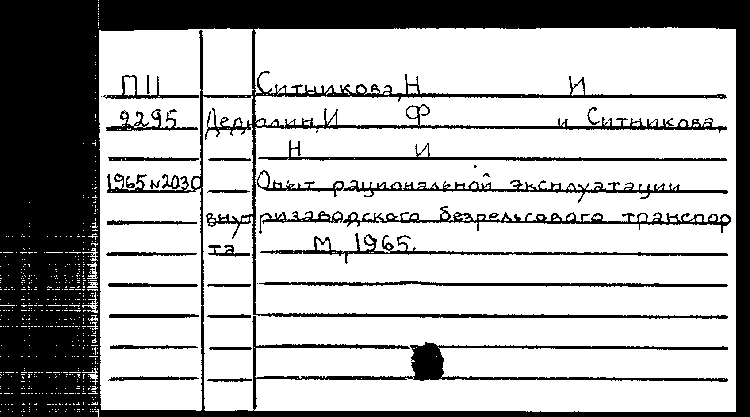 П11 Ситникова, Н И
2295 Дедюлин, И Ф и Ситникова,
Н И
1965 N2030 Опыт рациональной эксплуатации
внутризаводского безрельсового транспор
та М., 1965.